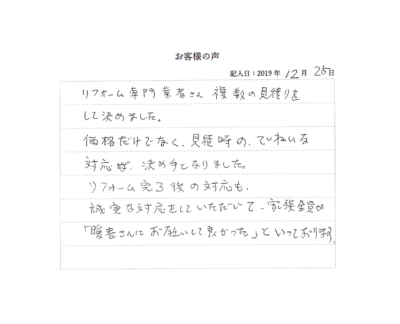 お客様の声
記入日：2019年 12月 25日
リフォーム専門業者さん 複数の見積りを
して決めました。
価格だけでなく、見積時の、ていねいな
対応が、決め手となりました。
リフォーム完了後の対応も、
誠実な対応をしていただいて、家族全員が
「暖者さんにお願いして良かった」といっております。